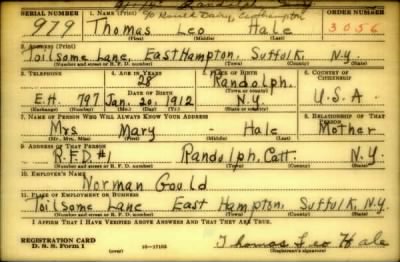 SERIAL NUMBER 1. NAME (Print) ORDER NUMBER
979 Thomas Leo Hale 3056
(First) (Middle) (Last)
2. ADDRESS (Print)
Toilsome Lane, East Hampton, Suffolk, N.Y.
(Number and street or R. F. D. number) (Town) (County) (State)
3. TELEPHONE 4. AGE IN YEARS 5. PLACE OF BIRTH 6. COUNTRY OF CITIZENSHIP
28 Randolph.
DATE OF BIRTH (Town or county)
E.H. 797 Jan. 20, 1912 N.Y. U.S.A
(Exchange) (Number) (Mo.) (Day) (Yr.) (State or country)
7. NAME OF PERSON WHO WILL ALWAYS KNOW YOUR ADDRESS 8. RELATIONSHIP OF THAT PERSON
Mrs Mary - Hale Mother
(Mr., Mrs., Miss) (First) (Middle) (Last)
9. ADDRESS OF THAT PERSON
R.F.D.#1 Randolph, Catt. N.Y.
(Number and street or R. F. D. number) (Town) (County) (State)
10. EMPLOYER'S NAME
Norman Gould
11. PLACE OF EMPLOYMENT OR BUSINESS
Toilsome Lane East Hampton, Suffolk, N.Y.
(Number and street or R. F. D. number) (Town) (County) (State)
I AFFIRM THAT I HAVE VERIFIED ABOVE ANSWERS AND THAT THEY ARE TRUE.
REGISTRATION CARD
D. S. S. Form 1 (over) 16—17105 Thomas Leo Hale
(Registrant's signature)